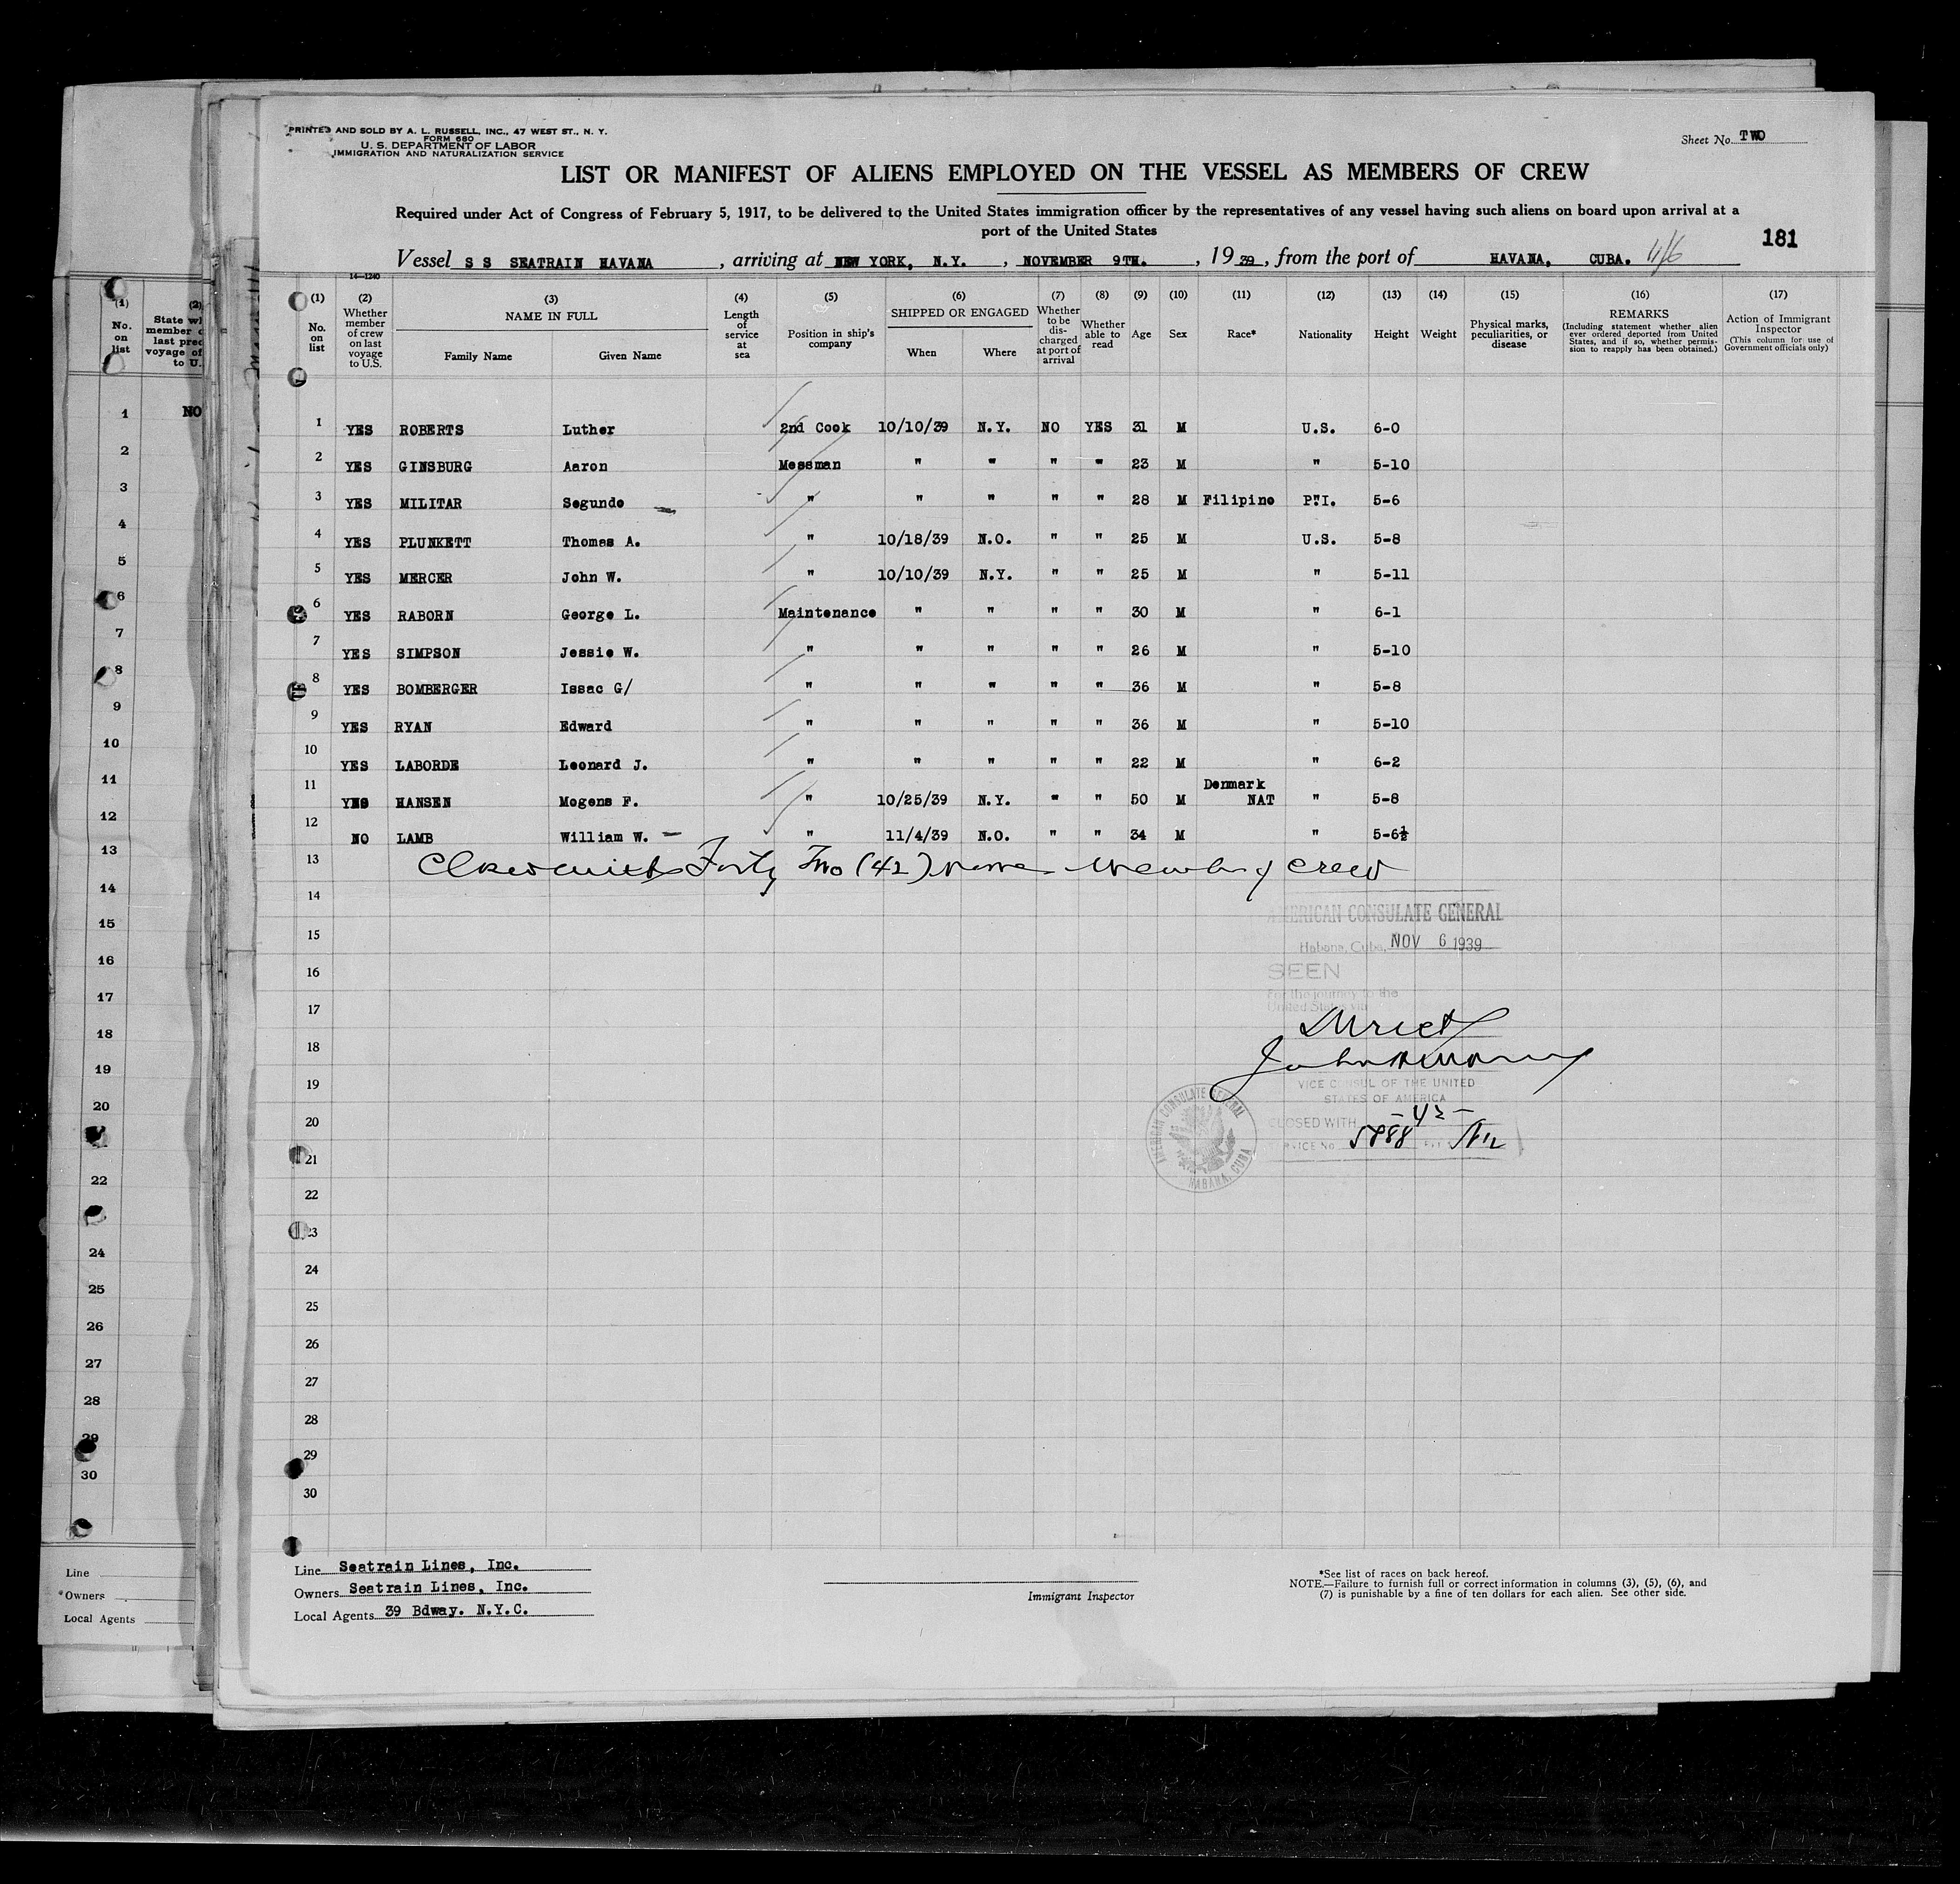 PRINTED AND SOLD BY A. L. RUSSELL, INC., 47 WEST ST., N. Y.
FORM 680
U. S. DEPARTMENT OF LABOR
IMMIGRATION AND NATURALIZATION SERVICE
Sheet No. TWO
LIST OR MANIFEST OF ALIENS EMPLOYED ON THE VESSEL AS MEMBERS OF CREW
Required under Act of Congress of February 5, 1917, to be delivered to the United States immigration officer by the representatives of any vessel having such aliens on board upon arrival at a
port of the United States
181
Vessel S S SEATRAIN HAVANA, arriving at NEW YORK, N.Y., NOVEMBER 9TH., 1939, from the port of HAVANA, CUBA. 11/6
14—1240
(1) No. on list
(2) Whether member of crew on last voyage to U.S.
(3) NAME IN FULL Family Name Given Name
(4) Length of service at sea
(5) Position in ship's company
(6) SHIPPED OR ENGAGED When Where
(7) Whether to be discharged at port of arrival
(8) Whether able to read
(9) Age
(10) Sex
(11) Race*
(12) Nationality
(13) Height
(14) Weight
(15) Physical marks, peculiarities, or disease
(16) REMARKS (Including statement whether alien ever ordered deported from United States, and if so, whether permission to reapply has been obtained.)
(17) Action of Immigrant Inspector (This column for use of Government officials only)
1 YES ROBERTS Luther 2nd Cook 10/10/39 N.Y. NO YES 31 M U.S. 6-0
2 YES GINSBURG Aaron Messman " " " " 23 M " 5-10
3 YES MILITAR Segundo " " " " " 28 M Filipino P.I. 5-6
4 YES PLUNKETT Thomas A. " 10/18/39 N.O. " " 25 M U.S. 5-8
5 YES MERCER John W. " 10/10/39 N.Y. " " 25 M " 5-11
6 YES RABORN George L. Maintenance " " " " 30 M " 6-1
7 YES SIMPSON Jessie W. " " " " " 26 M " 5-10
8 YES BOMBERGER Issac G/ " " " " " 36 M " 5-8
9 YES RYAN Edward " " " " " 36 M " 5-10
10 YES LABORDE Leonard J. " " " " " 22 M " 6-2
11 YES HANSEN Mogens F. " 10/25/39 N.Y. " " 50 M Denmark NAT " 5-8
12 NO LAMB William W. " 11/4/39 N.O. " " 34 M " 5-6½
13 Closed with Forty Two (42) names members of crew
14
15
16
17
18
19
20
21
22
23
24
25
26
27
28
29
30
AMERICAN CONSULATE GENERAL
Habana, Cuba, NOV 6 1939
SEEN
For the journey to the
United States via
Direct
VICE CONSUL OF THE UNITED
STATES OF AMERICA
CLOSED WITH -42-
SERVICE No. 5888
AMERICAN CONSULATE GENERAL
HABANA, CUBA
Line Seatrain Lines, Inc.
Owners Seatrain Lines, Inc.
Local Agents 39 Bdway. N.Y.C.
Immigrant Inspector
*See list of races on back hereof.
NOTE.—Failure to furnish full or correct information in columns (3), (5), (6), and
(7) is punishable by a fine of ten dollars for each alien. See other side.
(1) No. on list
(2) State wh
member o
last prec
voyage of
to U.
1 NO
2
3
4
5
6
7
8
9
10
11
12
13
14
15
16
17
18
19
20
22
24
25
26
27
28
29
30
Line
*Owners
Local Agents